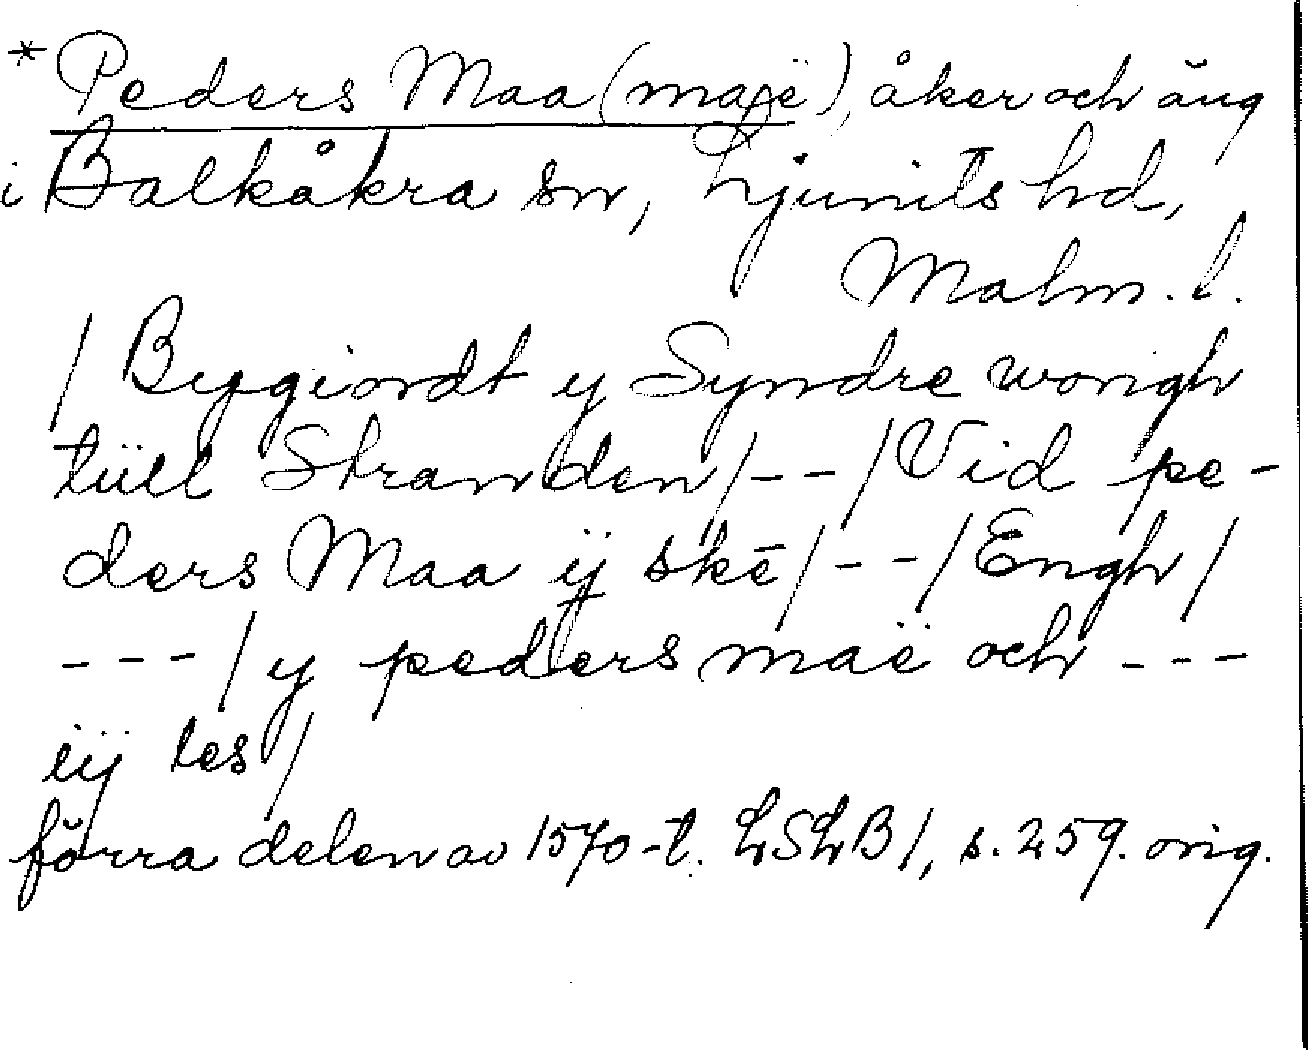 * Peders Maa (maë), åker och äng
i Balkåkra sn, Ljunits hd,
Malm. l.
/ Bygiordt y Syndre wongh
tüll Stranden / - - / Vid pe-
ders Maa ÿ skē / - - / Engh /
- - - / y peders maë och - - -
iÿ les /
förra delen av 1570-t. LSLB 1, s. 259. orig.